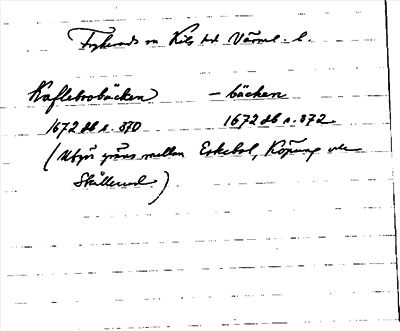 Frykerud sn Kils hd Värml. l.
Kaflebrobäcken - bäcken
1672 db s. 370 1672 db s. 372.
(Utgör gräns mellan Eskebol, Köpung och
Skållerud.)